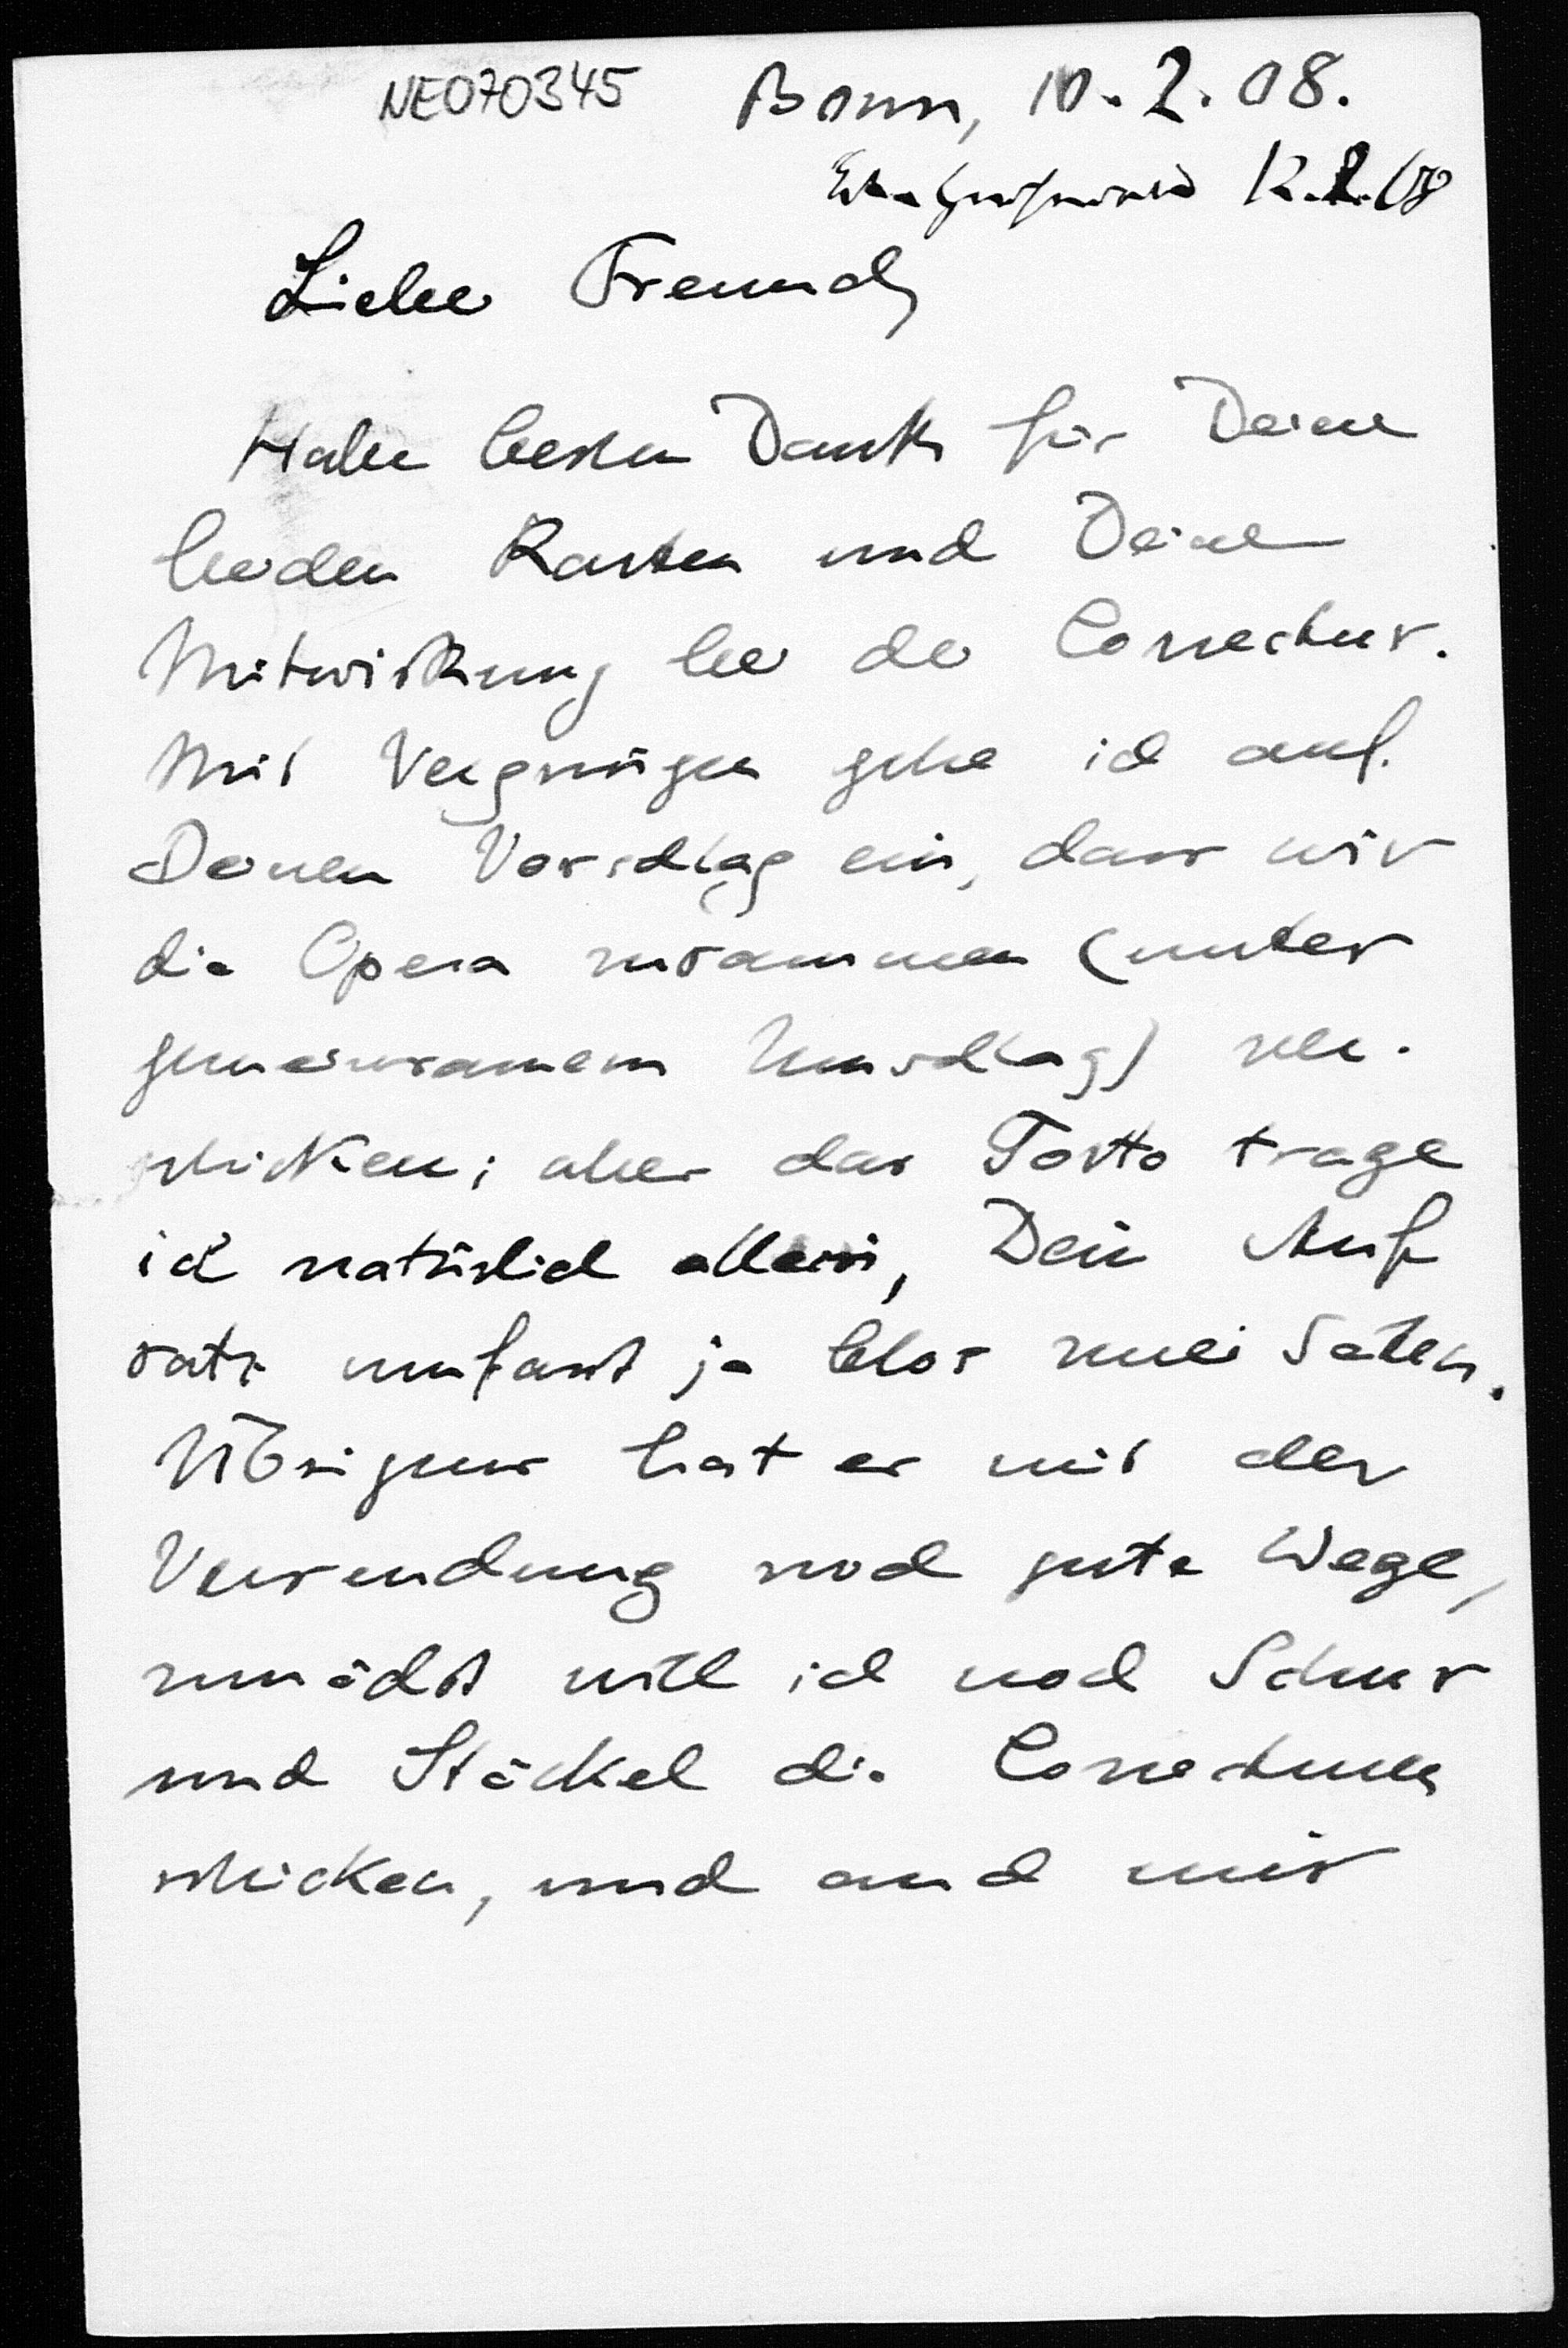 NE070345 Bonn, 10. 2. 08.
12.2.08
Lieber Freund,
Habe besten Dank für Deine
beiden Karten und Deine
Mitwirkung bei der Correctur.
Mit Vergnügen gehe ich auf
Deinen Vorschlag ein, dass wir
die Opera zusammen (unter
gemeinsamem Umschlag) ver-
schicken; aber das Porto trage
ich natürlich allein, Dein Auf
satz umfasst ja blos zwei Seiten.
Übrigens hat es mit der
Versendung noch gute Wege,
zunächst will ich noch Schur
und Stäckel die Correcturen
schicken, und auch mir